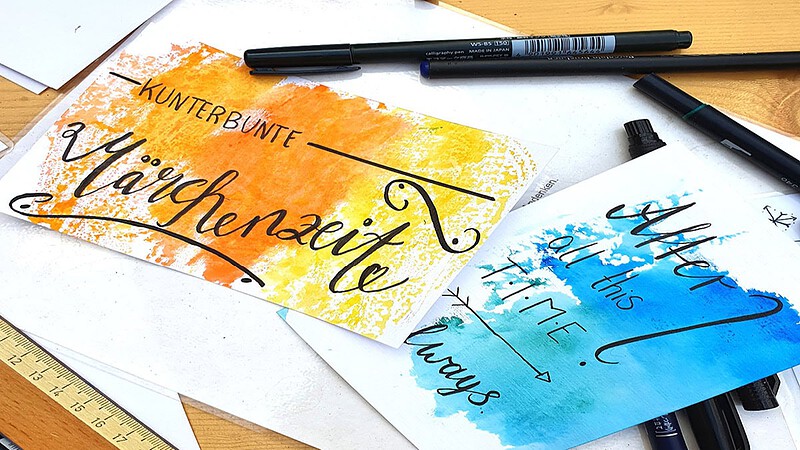 KUNTERBUNTE
Märchenzeit
After
all this
T.I.M.E.
always.
denken.
WS-BS (150)
calligraphy pen MADE IN JAPAN
12 13 14 15 16 17